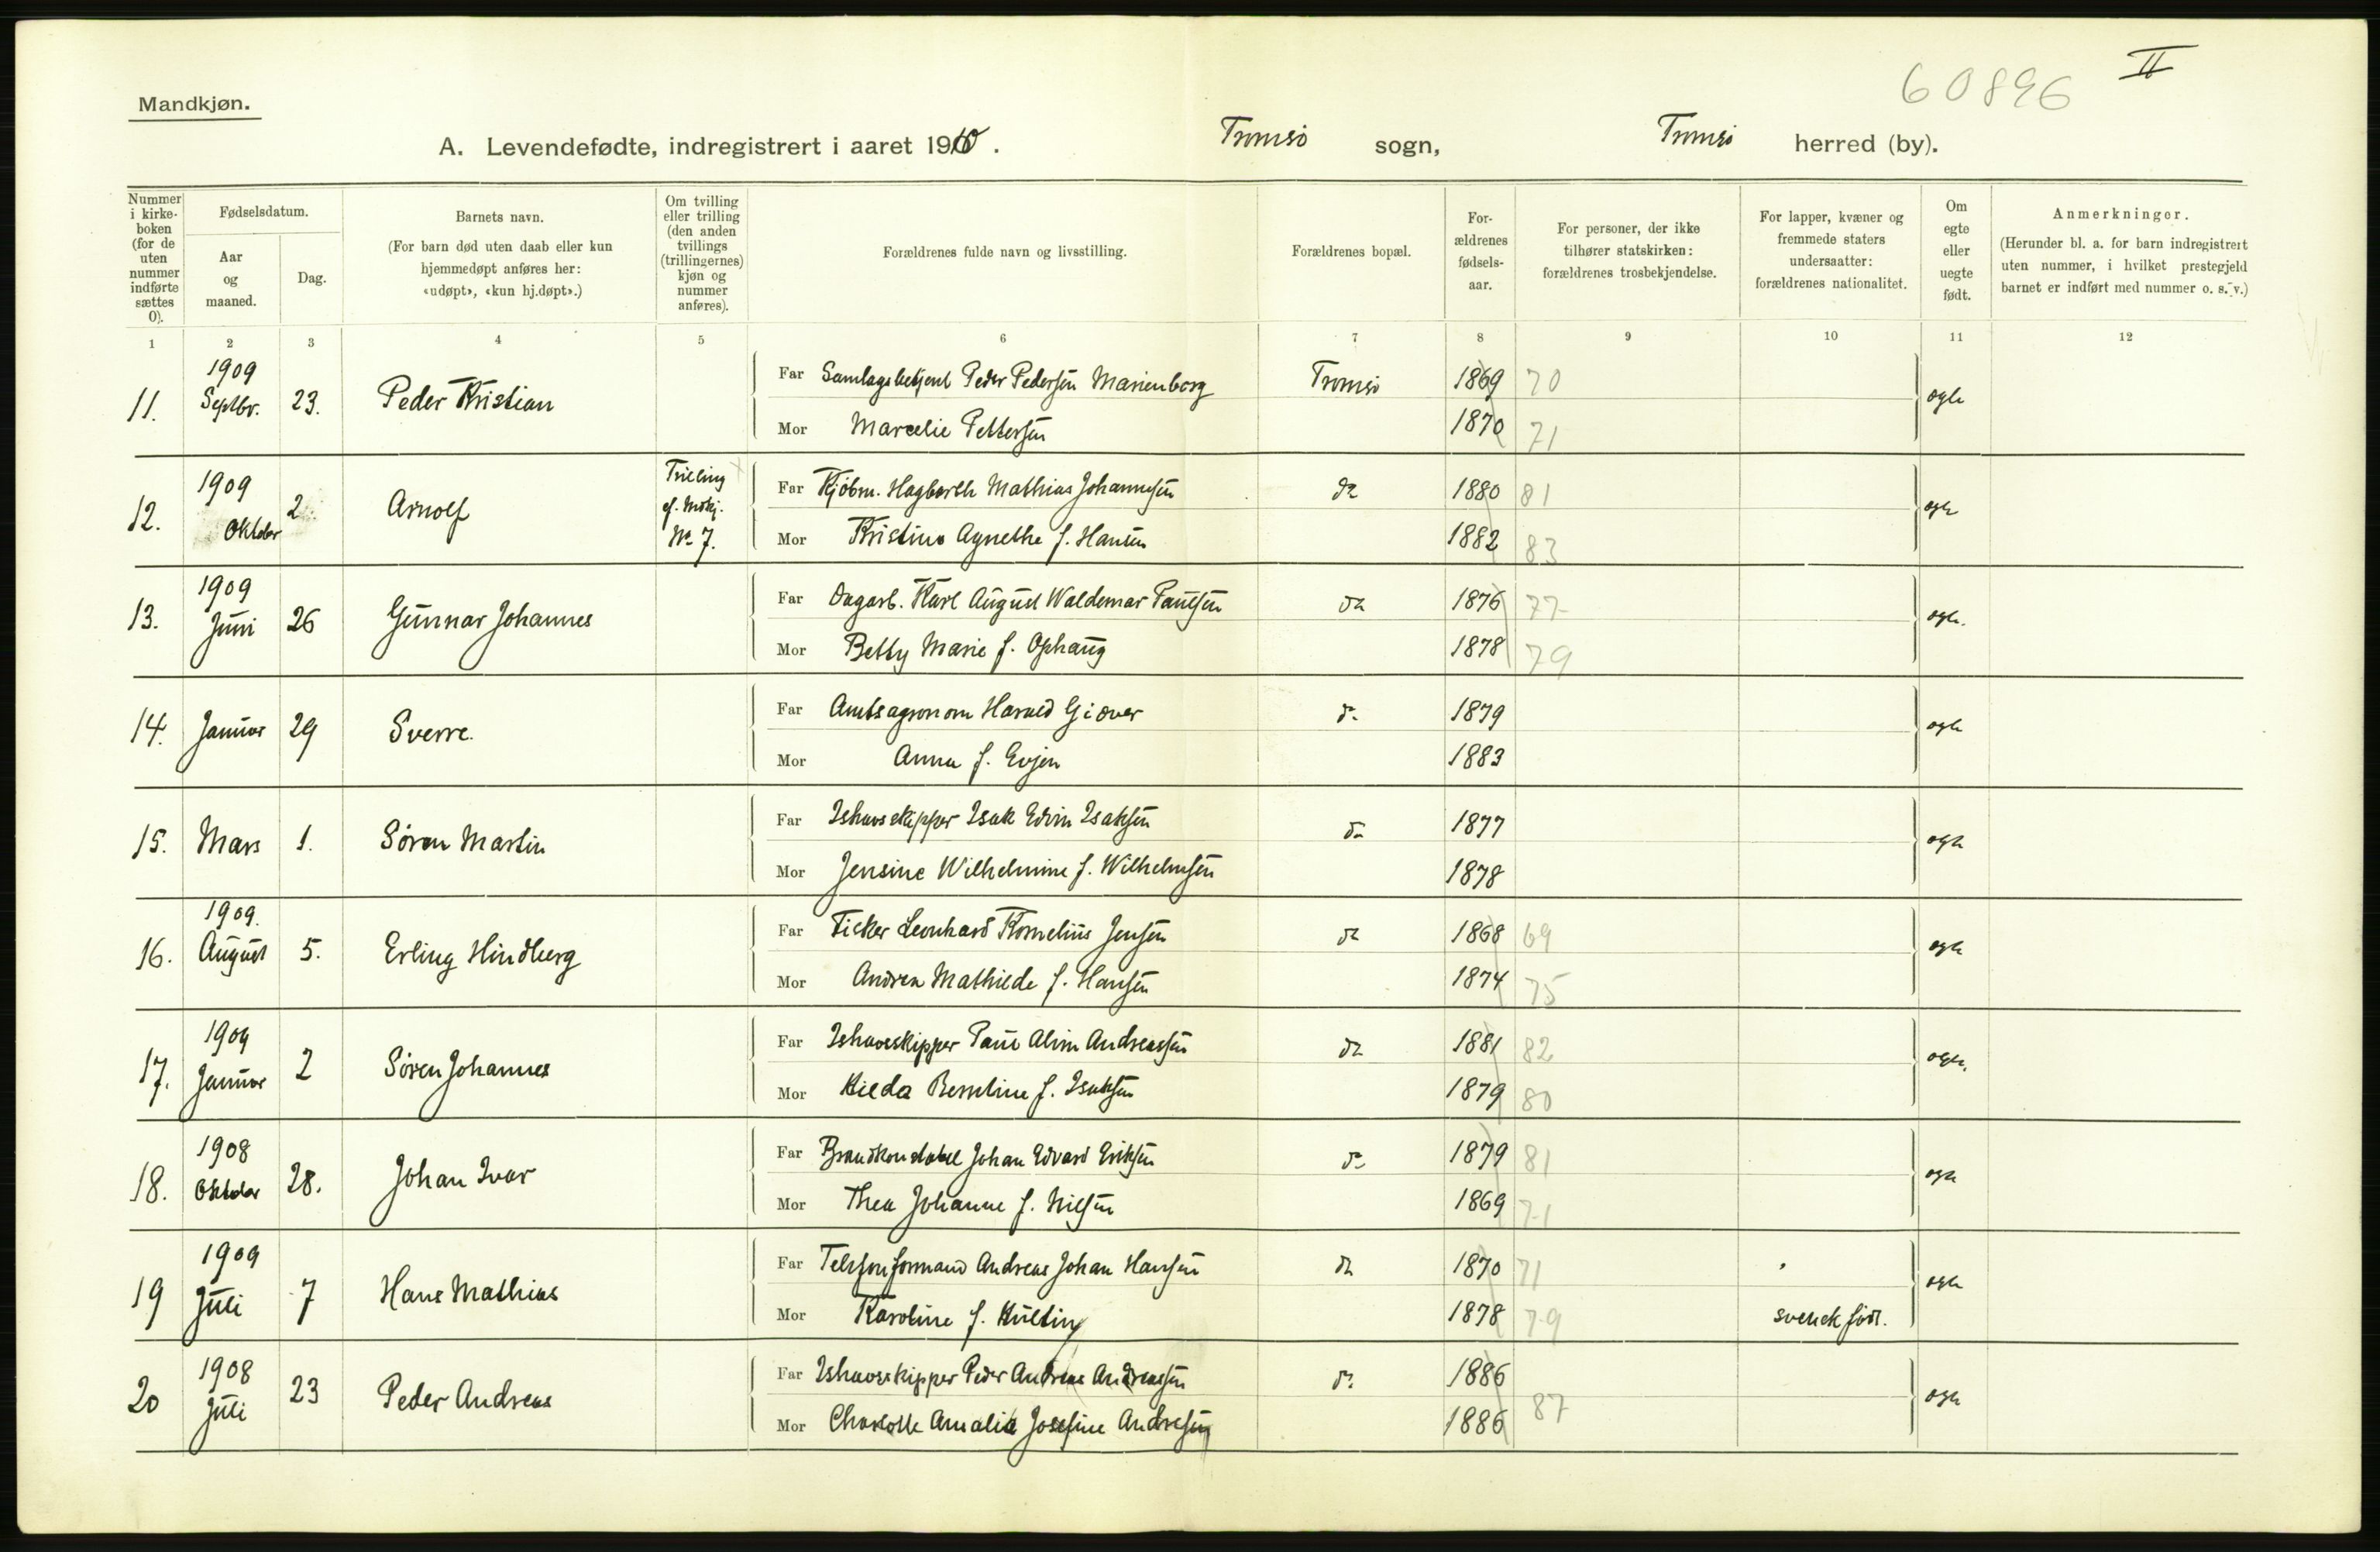 60896 II
Mandkjøn.
A. Levendefødte, indregistrert i aaret 1910. Tromsø sogn, Tromsø herred (by).
Nummer i kirke-boken (for de uten nummer indførte sættes 0).
Fødselsdatum.
Aar og maaned.
Dag.
Barnets navn.
(For barn død uten daab eller kun hjemmedøpt anføres her: «udøpt», «kun hj.døpt».)
Om tvilling eller trilling (den anden tvillings (trillingernes) kjøn og nummer anføres).
Forældrenes fulde navn og livsstilling.
Forældrenes bopæl.
For-ældrenes fødsels-aar.
For personer, der ikke tilhører statskirken: forældrenes trosbekjendelse.
For lapper, kvæner og fremmede staters undersaatter: forældrenes nationalitet.
Om egte eller uegte født.
Anmerkninger.
(Herunder bl. a. for barn indregistrert uten nummer, i hvilket prestegjeld barnet er indført med nummer o. s. v.)
1 2 3 4 5 6 7 8 9 10 11 12
11. 1909 Septbr. 23. Peder Kristian Far Samlagsbetjent Peder Pedersen Marienborg Tromsø 1869 70 egte
Mor Marcelie Pettersen 1870 71
12. 1909 Oktober 2. Arnolf Tvilling cf. Mdkj. No 7. Far Kjøbm. Hagbarth Mathias Johannesen do 1880 81 egte
Mor Kristine Agnethe f. Hansen 1882 83
13. 1909 Juni 26 Gunnar Johannes Far Dagarb. Karl August Waldemar Paulsen do 1876 77 egte.
Mor Betty Marie f. Ophaug 1878 79
14. Januar 29 Sverre. Far Amtsagronom Harald Giæver do 1879 egte
Mor Anna f. Evjen 1883
15. Mars 1. Søren Martin Far Ishavsskipper Isak Edvin Isaksen do 1877 egte
Mor Jensine Wilhelmine f. Wilhelmsen 1878
16. 1909. August 5. Erling Hindberg Far Fisker Leonhard Kornelius Jensen do 1868 69 egte
Mor Andrea Mathilde f. Hansen 1874 75
17. 1909 Januar 2 Søren Johannes Far Ishavsskipper Paul Alim Andreassen do 1881 82 egte.
Mor Hilda f. Isaksen 1879 80
18. 1908 Oktober 28. Johan Ivar Far Brandkonstabel Johan Edvard Eriksen do 1879 81 egte
Mor Thea Johanne f. Nilsen 1869 71
19 1909 Juli 7 Hans Mathias Far Telefonformand Andreas Johan Hansen do 1870 71 egte
Mor Karoline f. Hulting 1878 79 svensk født.
20 1908 Juli 23 Peder Andreas Far Ishavsskipper Peder Andreas Andreassen do 1886 egte
Mor Charlotte Amalie Josefine Andresen 1886 87